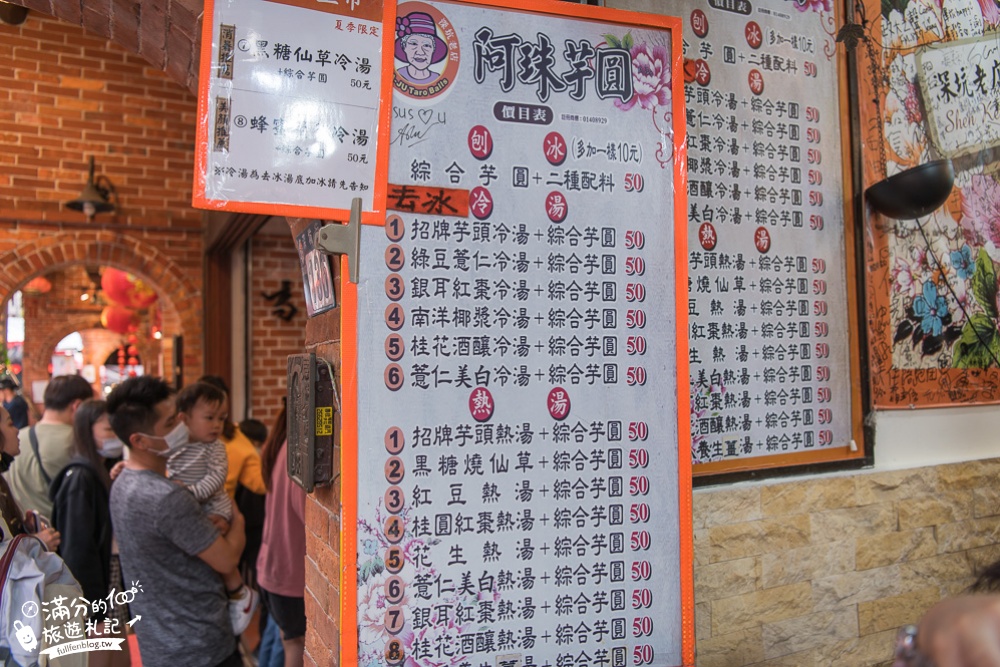 夏季限定
⑦黑糖仙草冷湯
+綜合芋圓 50元
冷湯
+綜合芋圓 50元
冷湯為去冰湯底加冰請先告知
JIU Taro Balls
阿珠芋圓
價目表
刨冰(多加一樣10元)
綜合芋圓+二種配料 50
去冰 冷湯
1 招牌芋頭冷湯+綜合芋圓 50
2 綠豆薏仁冷湯+綜合芋圓 50
3 銀耳紅棗冷湯+綜合芋圓 50
4 南洋椰漿冷湯+綜合芋圓 50
5 桂花酒釀冷湯+綜合芋圓 50
6 薏仁美白冷湯+綜合芋圓 50
熱湯
1 招牌芋頭熱湯+綜合芋圓 50
2 黑糖燒仙草+綜合芋圓 50
3 紅豆熱湯+綜合芋圓 50
4 桂圓紅棗熱湯+綜合芋圓 50
5 花生熱湯+綜合芋圓 50
6 薏仁美白熱湯+綜合芋圓 50
7 銀耳紅棗熱湯+綜合芋圓 50
8 桂花酒釀熱湯+綜合芋圓 50
養生薑湯+綜合芋圓 50
價目表
刨冰(多加一樣10元)
芋圓+二種配料 50
冷湯
芋頭冷湯+綜合芋圓 50
薏仁冷湯+綜合芋圓 50
紅棗冷湯+綜合芋圓 50
椰漿冷湯+綜合芋圓 50
酒釀冷湯+綜合芋圓 50
美白冷湯+綜合芋圓 50
熱湯
芋頭熱湯+綜合芋圓 50
燒仙草+綜合芋圓 50
豆熱湯+綜合芋圓 50
紅棗熱湯+綜合芋圓 50
生熱湯+綜合芋圓 50
美白熱湯+綜合芋圓 50
紅棗熱湯+綜合芋圓 50
酒釀熱湯+綜合芋圓 50
養生薑湯+綜合芋圓 50
深坑老
Shen Ke
滿分的100
旅遊札記
fullfenblog.tw